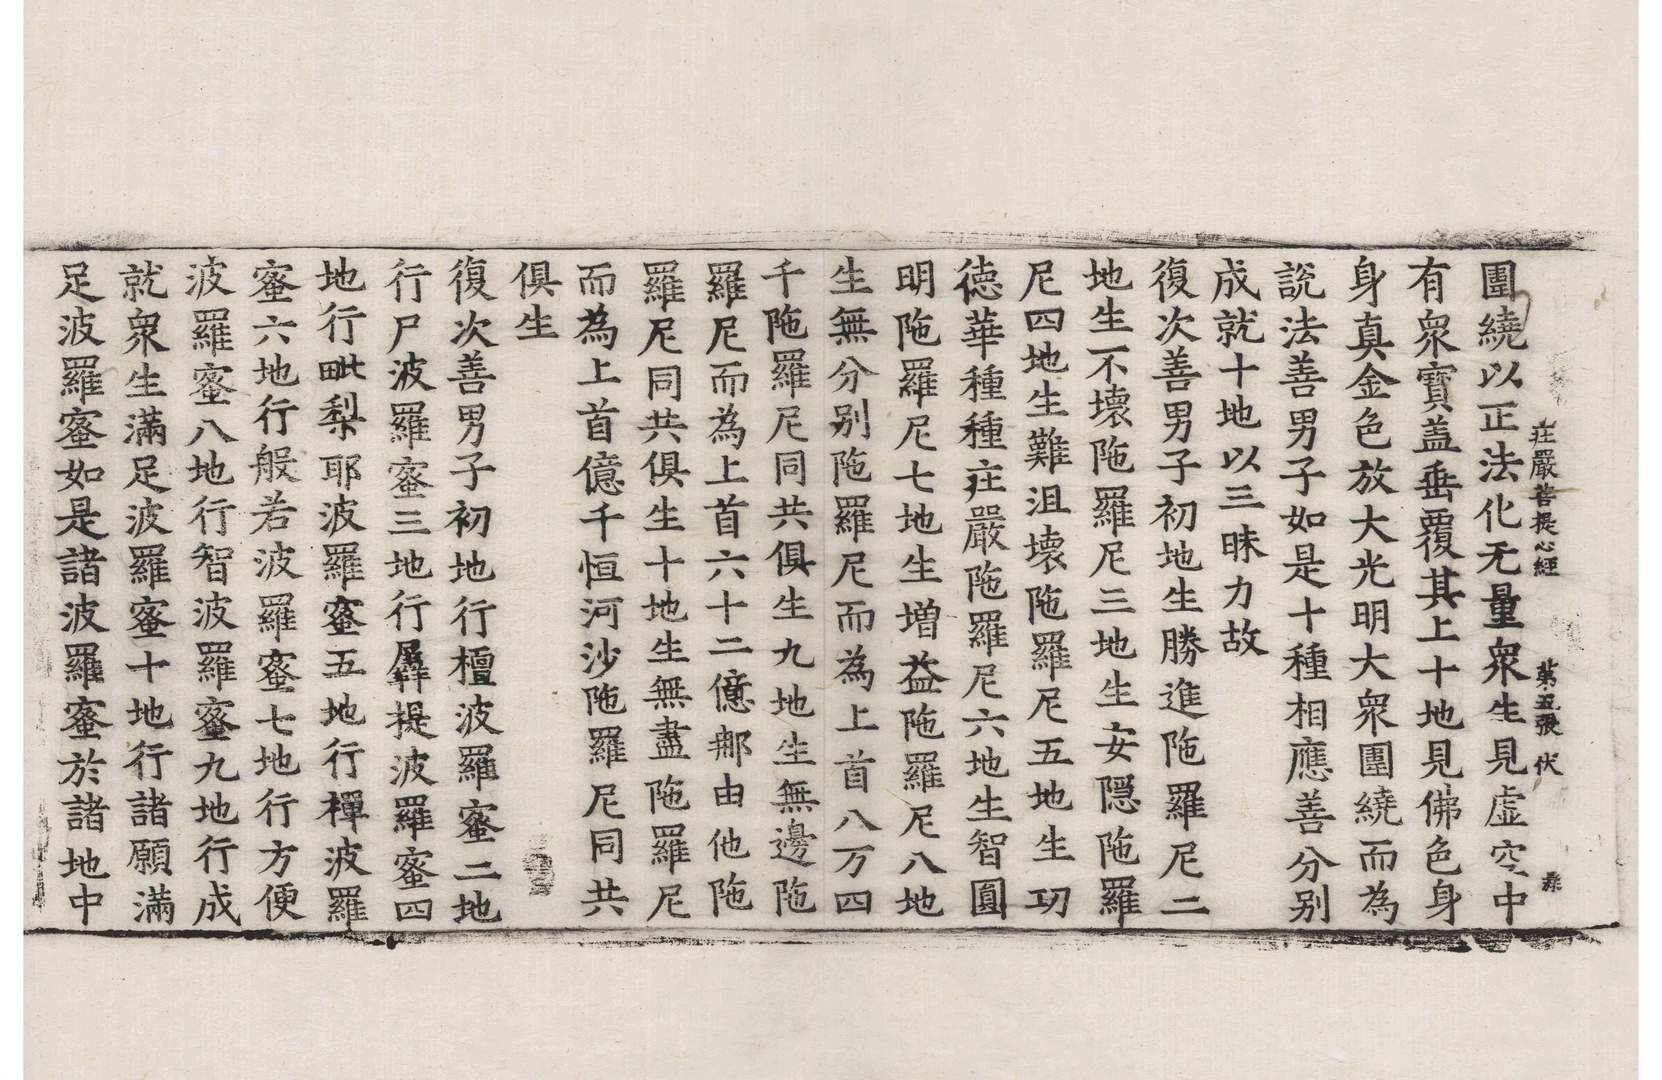 莊嚴菩提心經 苐五張 伏
圍繞以正法化无量衆生見虛空中
有衆寶盖垂覆其上十地見佛色身
身真金色放大光明大衆圍繞而為
說法善男子如是十種相應善分别
成就十地以三昧力故
復次善男子初地生勝進陁羅尼二
地生不壞陁羅尼三地生安隱陁羅
尼四地生難沮壞陁羅尼五地生功
德華種種莊嚴陁羅尼六地生智圓
明陁羅尼七地生增益陁羅尼八地
生無分别陁羅尼而為上首八万四
千陁羅尼同共俱生九地生無邊陁
羅尼而為上首六十二億那由他陁
羅尼同共俱生十地生無盡陁羅尼
而為上首億千恒河沙陁羅尼同共
俱生
復次善男子初地行檀波羅蜜二地
行尸波羅蜜三地行羼提波羅蜜四
地行毗梨耶波羅蜜五地行禪波羅
蜜六地行般若波羅蜜七地行方便
波羅蜜八地行智波羅蜜九地行成
就衆生滿足波羅蜜十地行諸願滿
足波羅蜜如是諸波羅蜜於諸地中